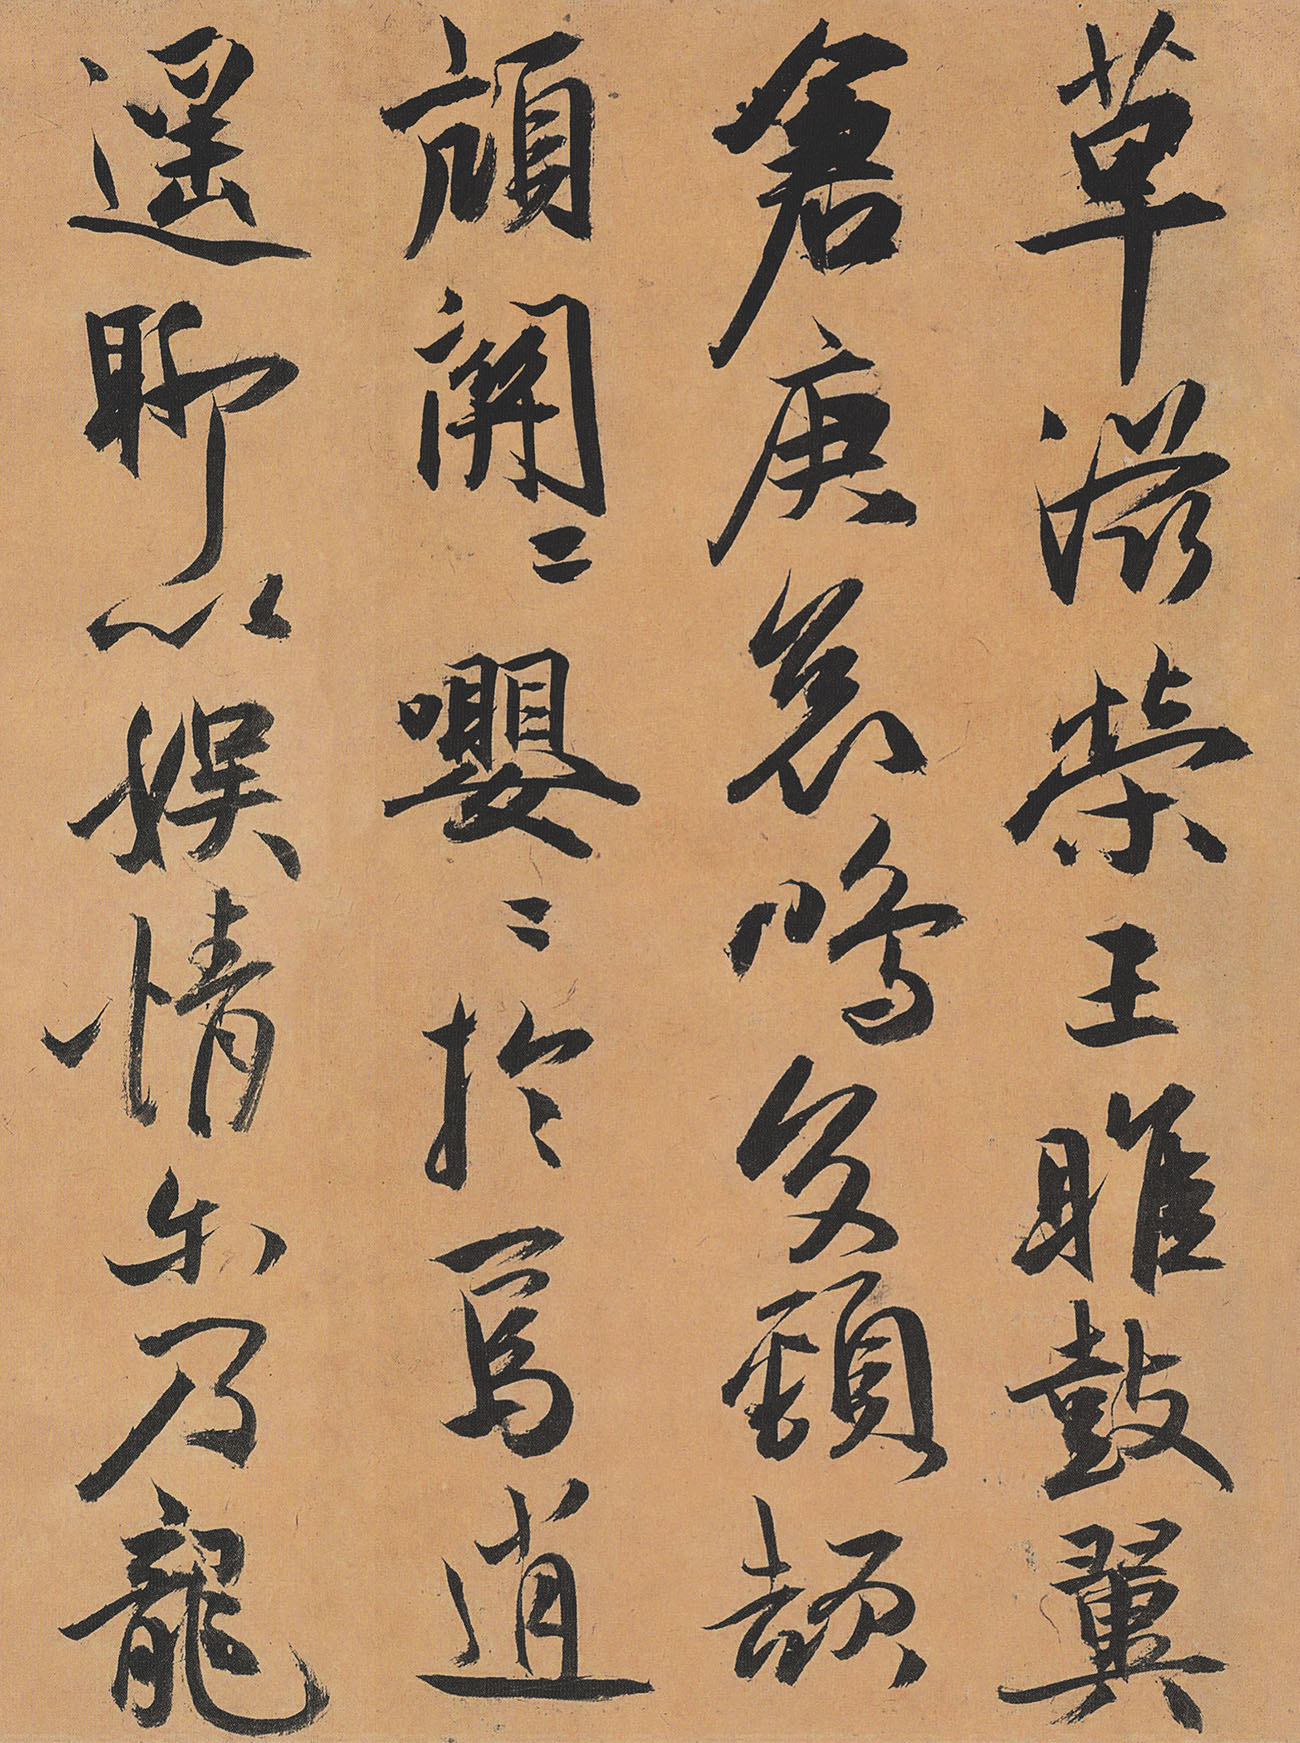 草滋榮王雎鼓翼
倉庚哀鳴交頸頡
頏關〻嚶〻於焉逍
遥聊以娱情尔乃龍